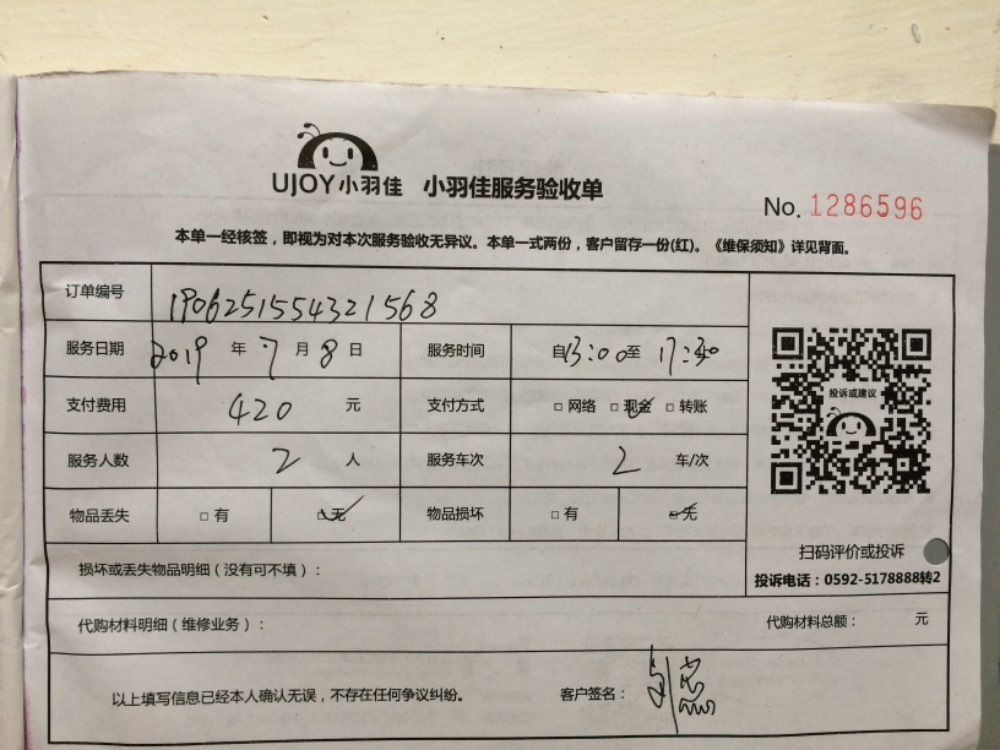 UJOY小羽佳 小羽佳服务验收单
No. 1286596
本单一经核签，即视为对本次服务验收无异议。本单一式两份，客户留存一份(红)。《维保须知》详见背面。
订单编号 1906251554321568
服务日期 2019 年 7 月 8 日 服务时间 自13:00至 17:30
支付费用 420 元 支付方式 □ 网络 □ 现金 □ 转账
投诉或建议
服务人数 2 人 服务车次 2 车/次
物品丢失 □ 有 □ 无 物品损坏 □ 有 □ 无
扫码评价或投诉
损坏或丢失物品明细（没有可不填）：
投诉电话：0592-5178888转2
代购材料明细（维修业务）： 代购材料总额： 元
以上填写信息已经本人确认无误，不存在任何争议纠纷。 客户签名：